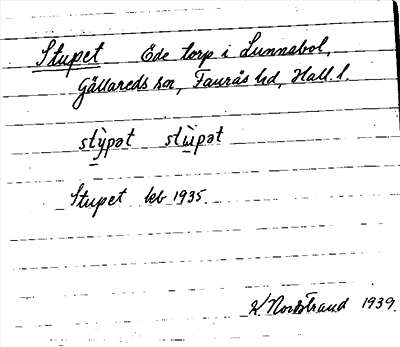 Stupet Öde torp i Lunnabol,
Gällareds sn, Faurås hd, Hall. l.
stỳpət stùpət
Stupet kb 1935.
K. Nordstrand 1939.